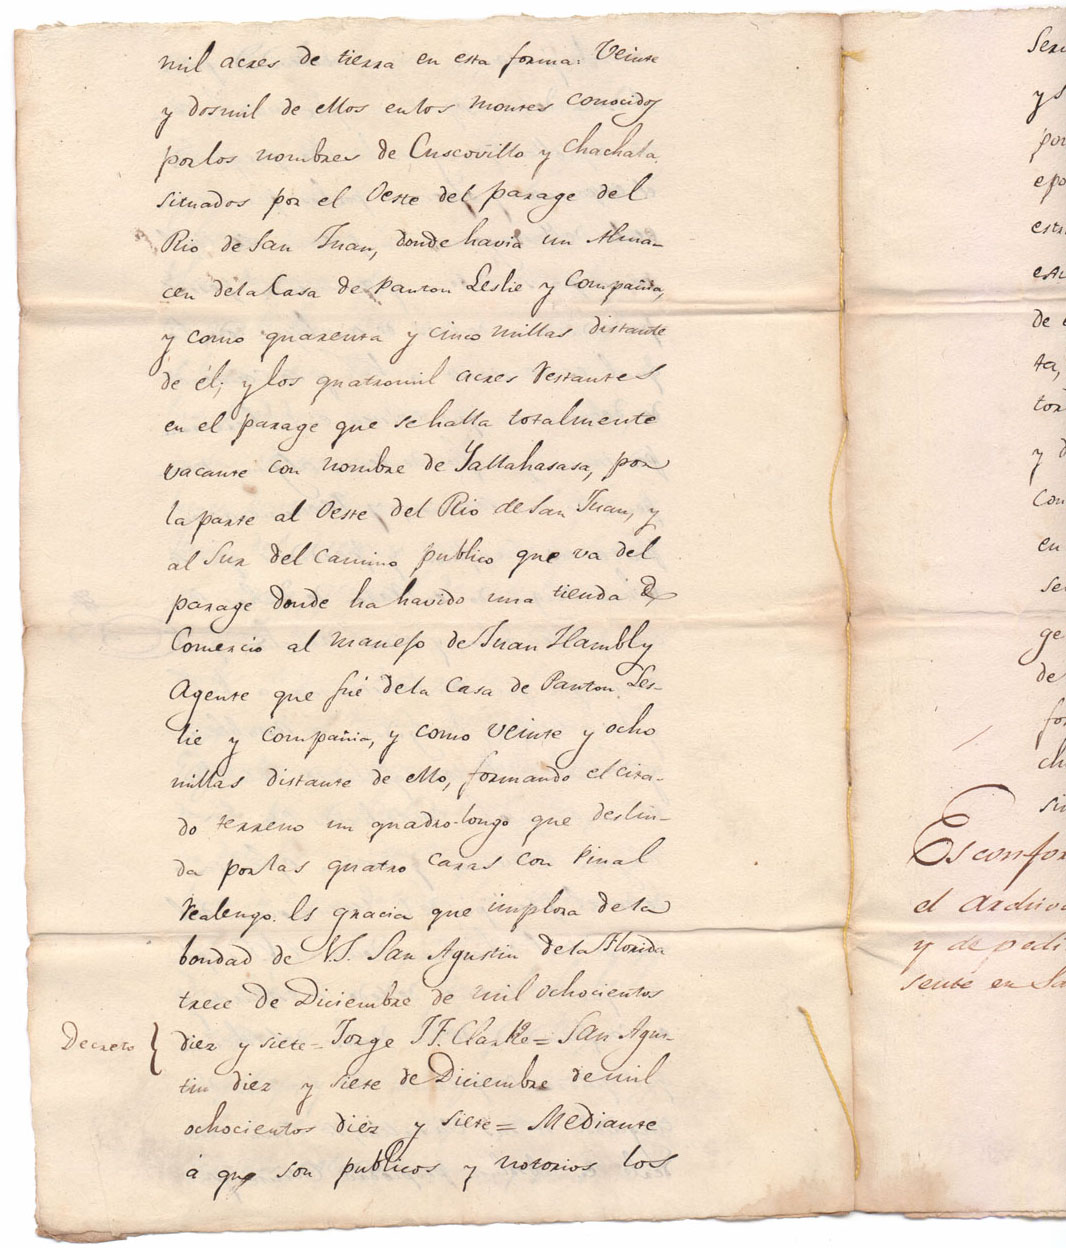 mil acres de tierra en esta forma: Veinte
y dosmil de ellos enlos montes conocidos
porlos nombres de Cuscovillo y Chachala,
situados por el Oeste del parage del
Rio de San Juan, donde havia un Alma-
cen dela Casa de Panton Leslie y Compañia,
y como quarenta y cinco millas distante
de él; y los quatromil acres restantes
en el parage que se halla totalmente
vacante con nombre de Yallahasasa, por
la parte al Oeste del Rio de San Juan, y
al Sur del camino publico que va del
parage donde ha havido una tienda de
Comercio al manejo de Juan Hambly
Agente que fué dela Casa de Panton Les-
lie y Compañia, y como veinte y ocho
millas distante de ello, formando el cita-
do terreno un quadro-longo que deslin-
da porlas quatro caras con Pinal
realengo. Es gracia que implora dela
bondad de V.S. San Agustin dela Florida
trece de Diciembre de mil ochocientos
Decreto } diez y siete = Jorge J. F. Clarke = San Agus-
tin diez y siete de Diciembre de mil
ochocientos diez y siete = Mediante
á que son publicos y notorios los
y
por
epo
est
de
ta,
tor
y
Con
en
se
ge
de
fo
ch
si
Es confor
el archivo
y de pedi
sente en Sa